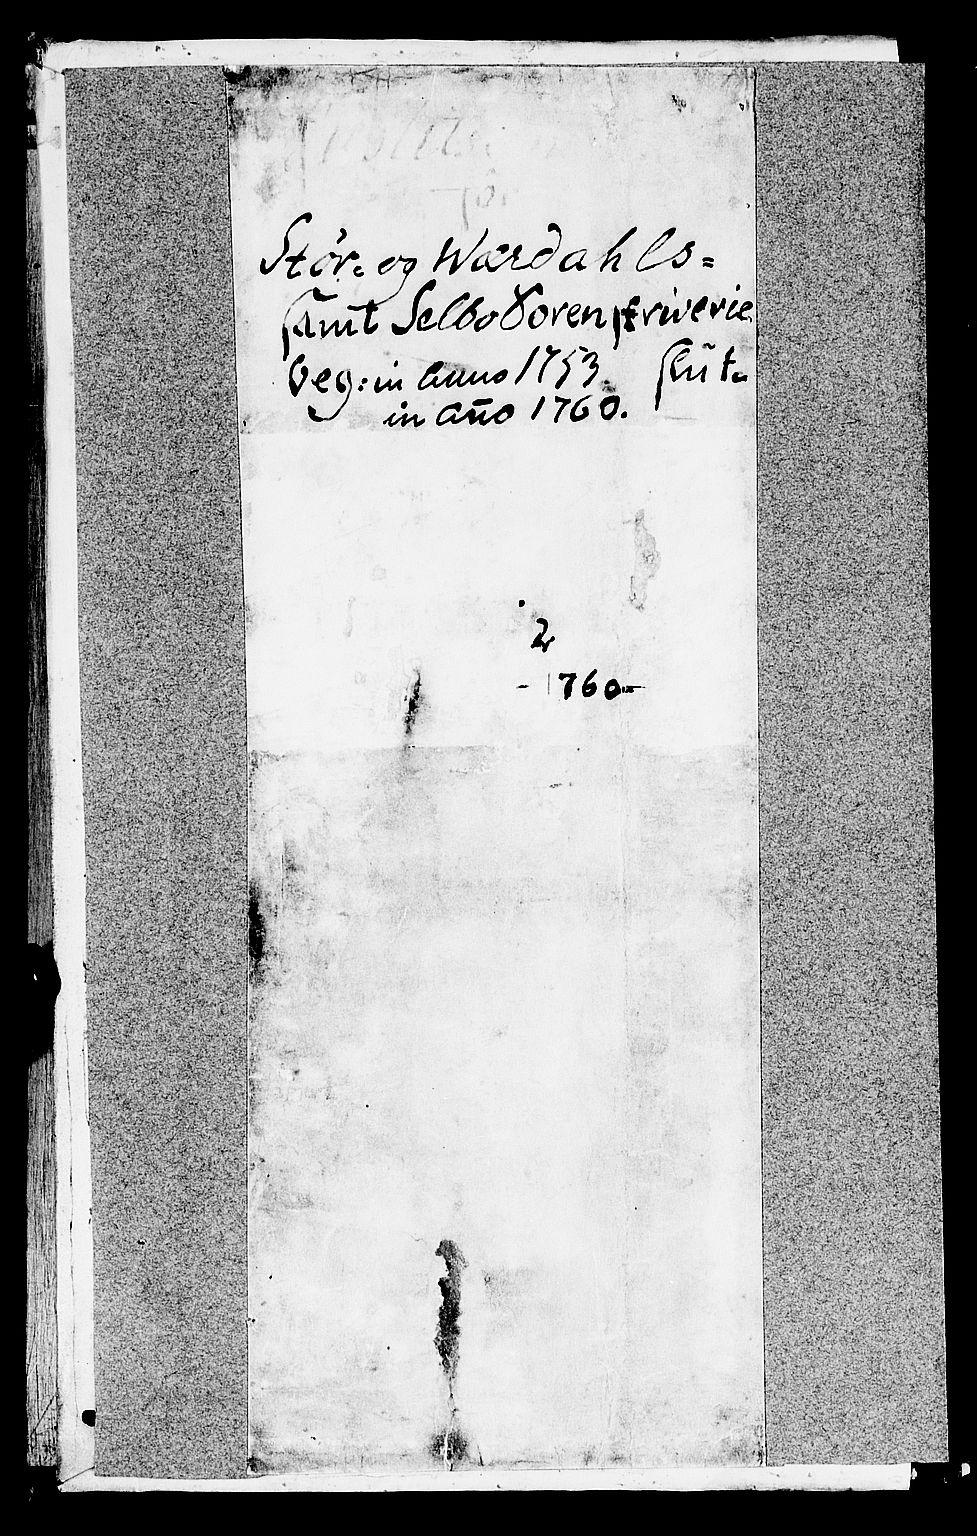 Stør- og Wærdahls=
samt Selbo Sorenskriverie
beg: in Anno 1753. slut.
in Año 1760.
2
- 1760 -